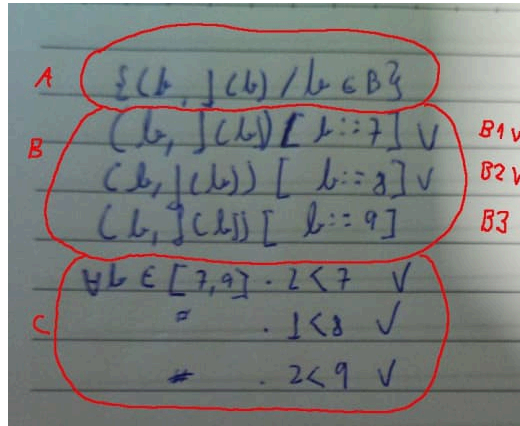 A {(b, ](b) / b ∈ B}
B (b, ](b)) [ b::=7] V B1 V
(b, ](b)) [ b::=8] V B2 V
(b, ](b)) [ b::=9] B3
∀b ∈ [7,9] . 2<7 V
C " . 1<8 V
" . 2<9 V